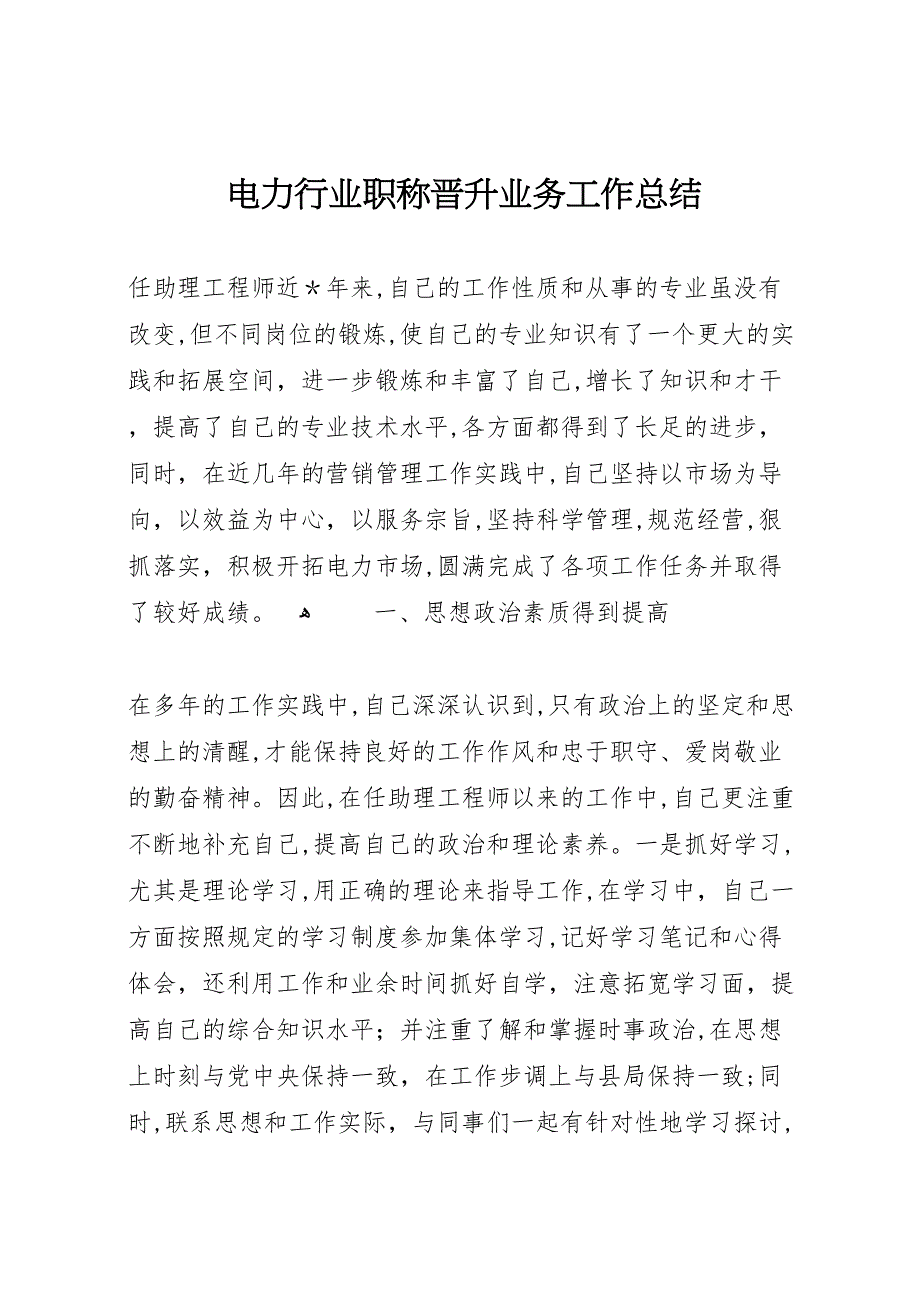 电力行业职称晋升业务工作总结
任助理工程师近＊年来,自己的工作性质和从事的专业虽没有
改变,但不同岗位的锻炼,使自己的专业知识有了一个更大的实
践和拓展空间，进一步锻炼和丰富了自己,增长了知识和才干
，提高了自己的专业技术水平,各方面都得到了长足的进步，
同时，在近几年的营销管理工作实践中,自己坚持以市场为导
向，以效益为中心，以服务宗旨,坚持科学管理,规范经营,狠
抓落实，积极开拓电力市场,圆满完成了各项工作任务并取得
了较好成绩。 ﻫ 一、思想政治素质得到提高
在多年的工作实践中,自己深深认识到,只有政治上的坚定和思
想上的清醒,才能保持良好的工作作风和忠于职守、爱岗敬业
的勤奋精神。因此,在任助理工程师以来的工作中,自己更注重
不断地补充自己,提高自己的政治和理论素养。一是抓好学习,
尤其是理论学习,用正确的理论来指导工作,在学习中，自己一
方面按照规定的学习制度参加集体学习,记好学习笔记和心得
体会，还利用工作和业余时间抓好自学，注意拓宽学习面，提
高自己的综合知识水平；并注重了解和掌握时事政治,在思想
上时刻与党中央保持一致，在工作步调上与县局保持一致;同
时,联系思想和工作实际，与同事们一起有针对性地学习探讨,